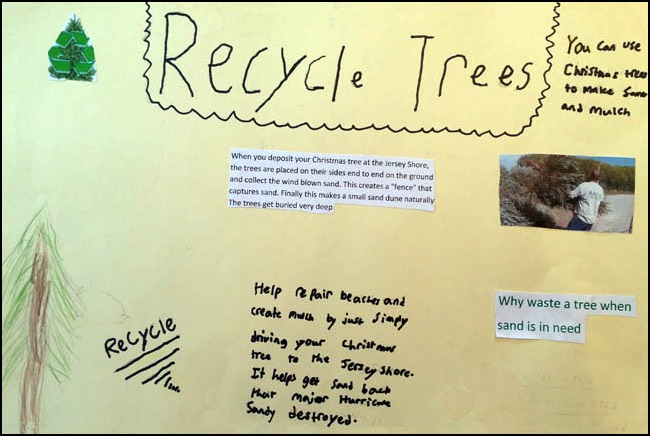 Recycle Trees
You can use
Christmas trees
to make sand
and mulch
When you deposit your Christmas tree at the Jersey Shore,
the trees are placed on their sides end to end on the ground
and collect the wind blown sand. This creates a "fence" that
captures sand. Finally this makes a small sand dune naturally
The trees get buried very deep
Help repair beaches and
create mulch by just simply
driving your Christmas
tree to the Jersey Shore.
It helps get sand back
that major Hurricane
Sandy destroyed.
Why waste a tree when
sand is in need
Recycle